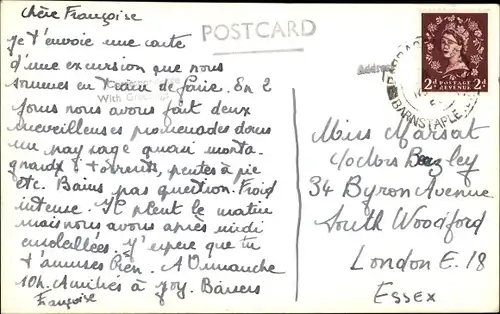 Chère Françoise
POSTCARD
Je t'envoie une carte
d'une excursion que nous
sommes en train de faire. En 2
jours nous avons fait deux
With
merveilleuses promenades dans
un paysage quasi monta-
gnard & torrents, pentes à pic
etc. Bains pas question. Froid
intense. Il pleut le matin
mais nous avons après midi
ensoleillées. J'espère que tu
t'amuses bien. A Dimanche
10h. Amitiés à Joy. Baisers
Françoise
Address
2d POSTAGE REVENUE 2d
BARNSTAPLE
Miss Marsat
c/o Mrs Bezley
34 Byron Avenue
South Woodford
London E.18
Essex